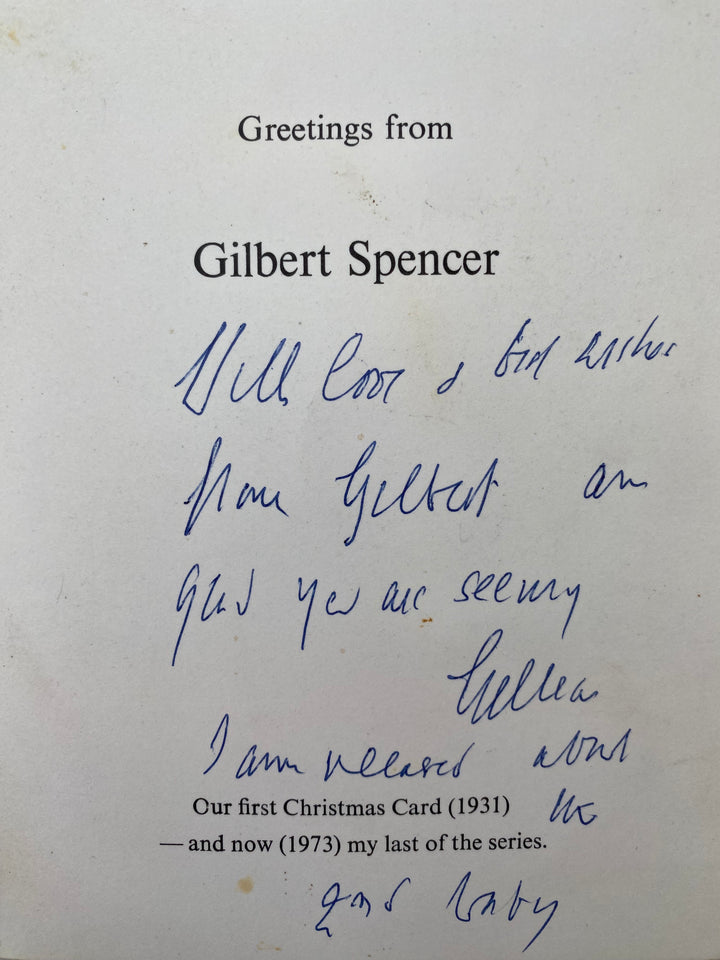 Greetings from
Gilbert Spencer
With love & best wishes
from Gilbert am
glad you are seeing
Gillian
I am pleased about
the
Our first Christmas Card (1931)
— and now (1973) my last of the series.
2nd baby